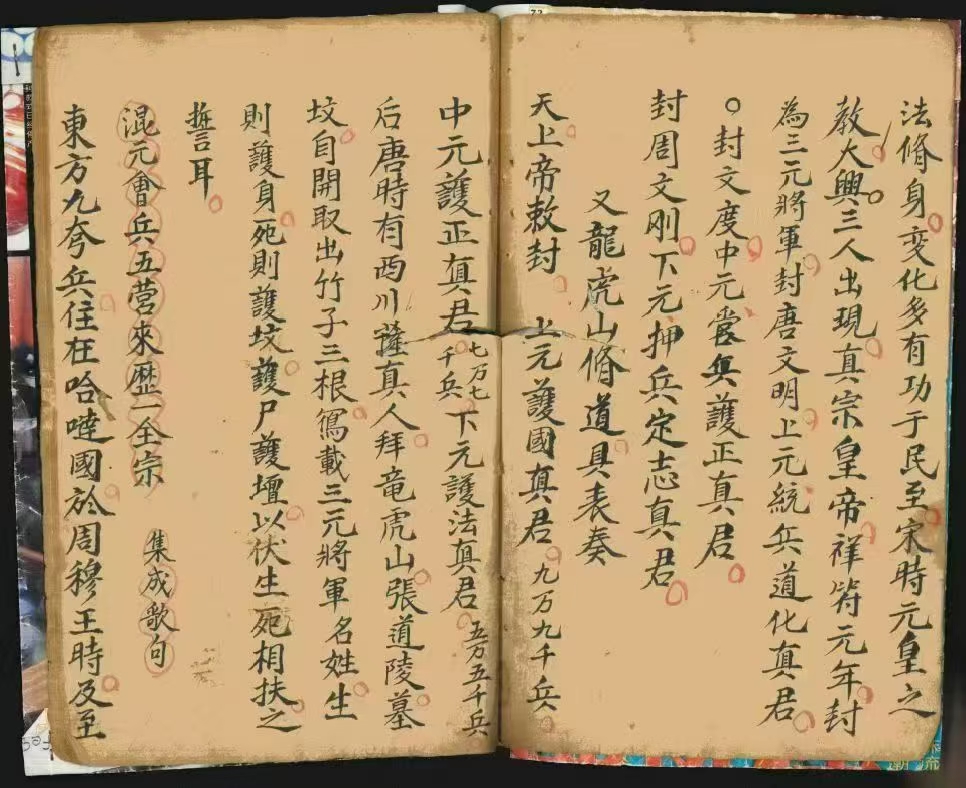 法脩身变化多有功于民至宋時元皇之
教大興三人出現真宗皇帝祥符元年封
為三元將軍封唐文明上元統兵道化真君
封文度中元裳兵護正真君
封周文刚下元押兵定志真君
又龍虎山脩道具表奏
天上帝敕封 上元護國真君九万九千兵
中元護正真君七万七千兵下元護法真君五万五千兵
后唐時有西川薩真人拜竜虎山張道陵墓
坟自開取出竹子三根寫載三元將軍名姓生
則護身死則護坟護尸護壇以伏生死相扶之
誓耳
混元會兵五营來歷一全宗 集成歌句
東方九夸兵住在哈噠國於周穆王時及至
潮流